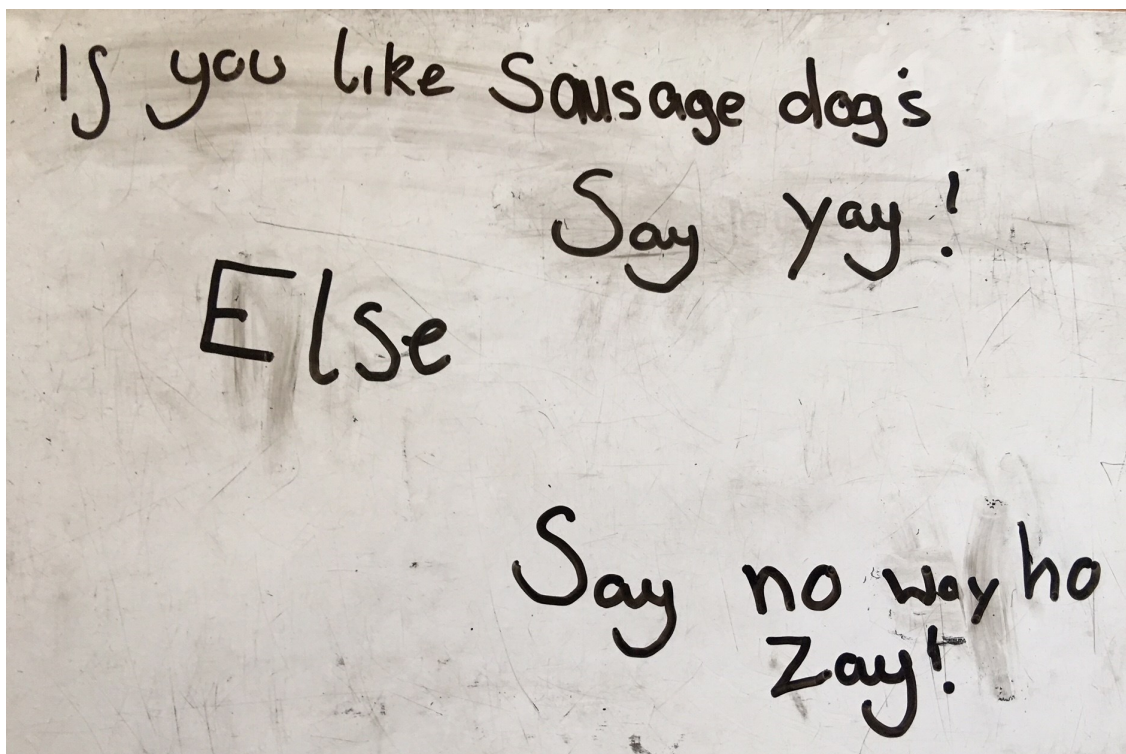 If you like Sausage dog's
Say yay!
Else
Say no way ho
Zay!